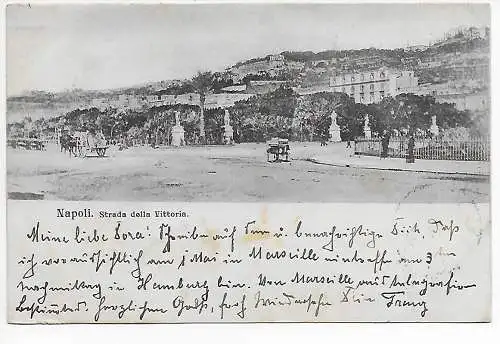 Napoli. Strada della Vittoria.
Meine liebe Dora! Schreibe auf u. benachrichtige Dich, daß
ich voraussichtlich am 1 Mai in Marseille eintreffe am 3ten
nachmittag in Hamburg bin. Von Marseille aus telegrafiere
bestimmtes. herzlichen Gruß, froh Wiedersehn Dein Franz